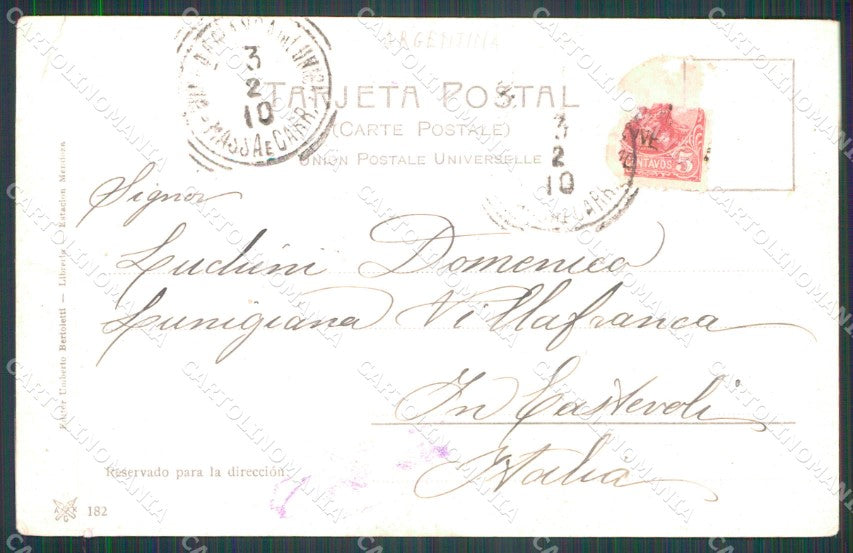 ARGENTINA
TARJETA POSTAL
(CARTE POSTALE)
UNION POSTALE UNIVERSELLE
3
2
10
MASSA E CARR.
3
2
10
CARR.
CENTAVOS 5
Signor
Luchini Domenica
Lunigiana Villafranca
In Castevoli
Italia
Editor Umberto Bertoletti — Libreria — Estacion Mendoza
Reservado para la dirección.
182
CARTOLINOMANIA